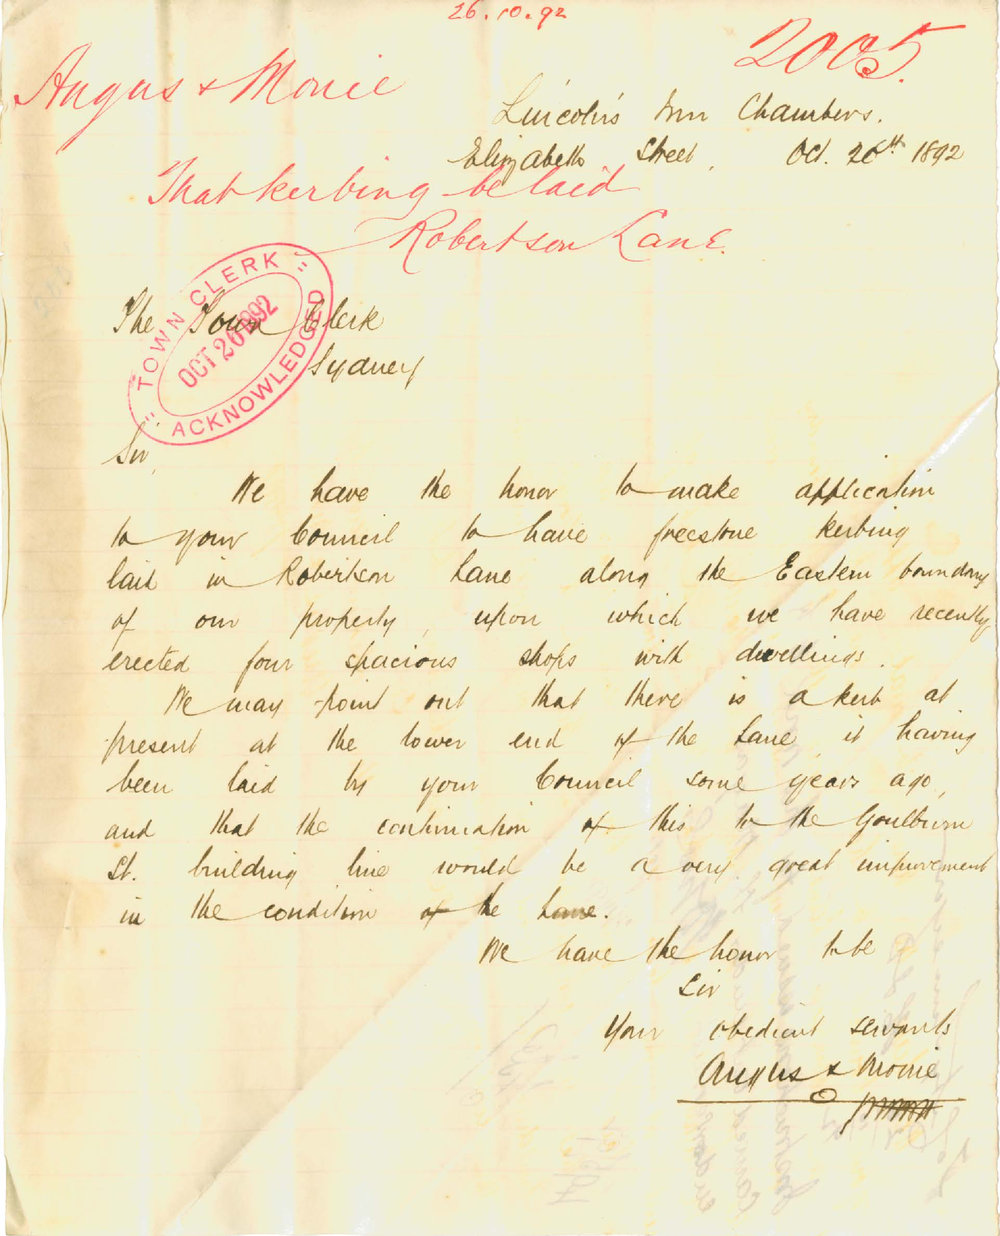 26.10.92
2005.
Angus & Monie
Lincoln's Inn Chambers.
Elizabeth Street, Oct. 26th 1892
That kerbing be laid
Robertson Lane.
TOWN CLERK
OCT 26 1892
ACKNOWLEDGED
The Town Clerk
Sydney
Sir,
We have the honor to make application
to your Council to have freestone kerbing
laid in Robertson Lane along the Eastern boundary
of our property, upon which we have recently
erected four spacious shops with dwellings.
We may point out that there is a kerb at
present at the lower end of the Lane it having
been laid by your Council some years ago,
and that the continuation of this to the Goulburn
St. building line would be a very great improvement
in the condition of the Lane.
We have the honor to be
Sir
Your obedient servants
Angus & Monie